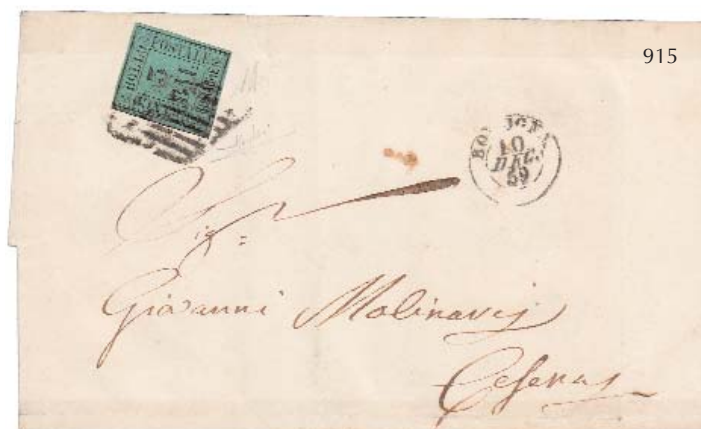 915
BOLLO POSTALE
BOLOGNA
10
DEC.
59
Sig.
Giovanni Molinary
Cesena